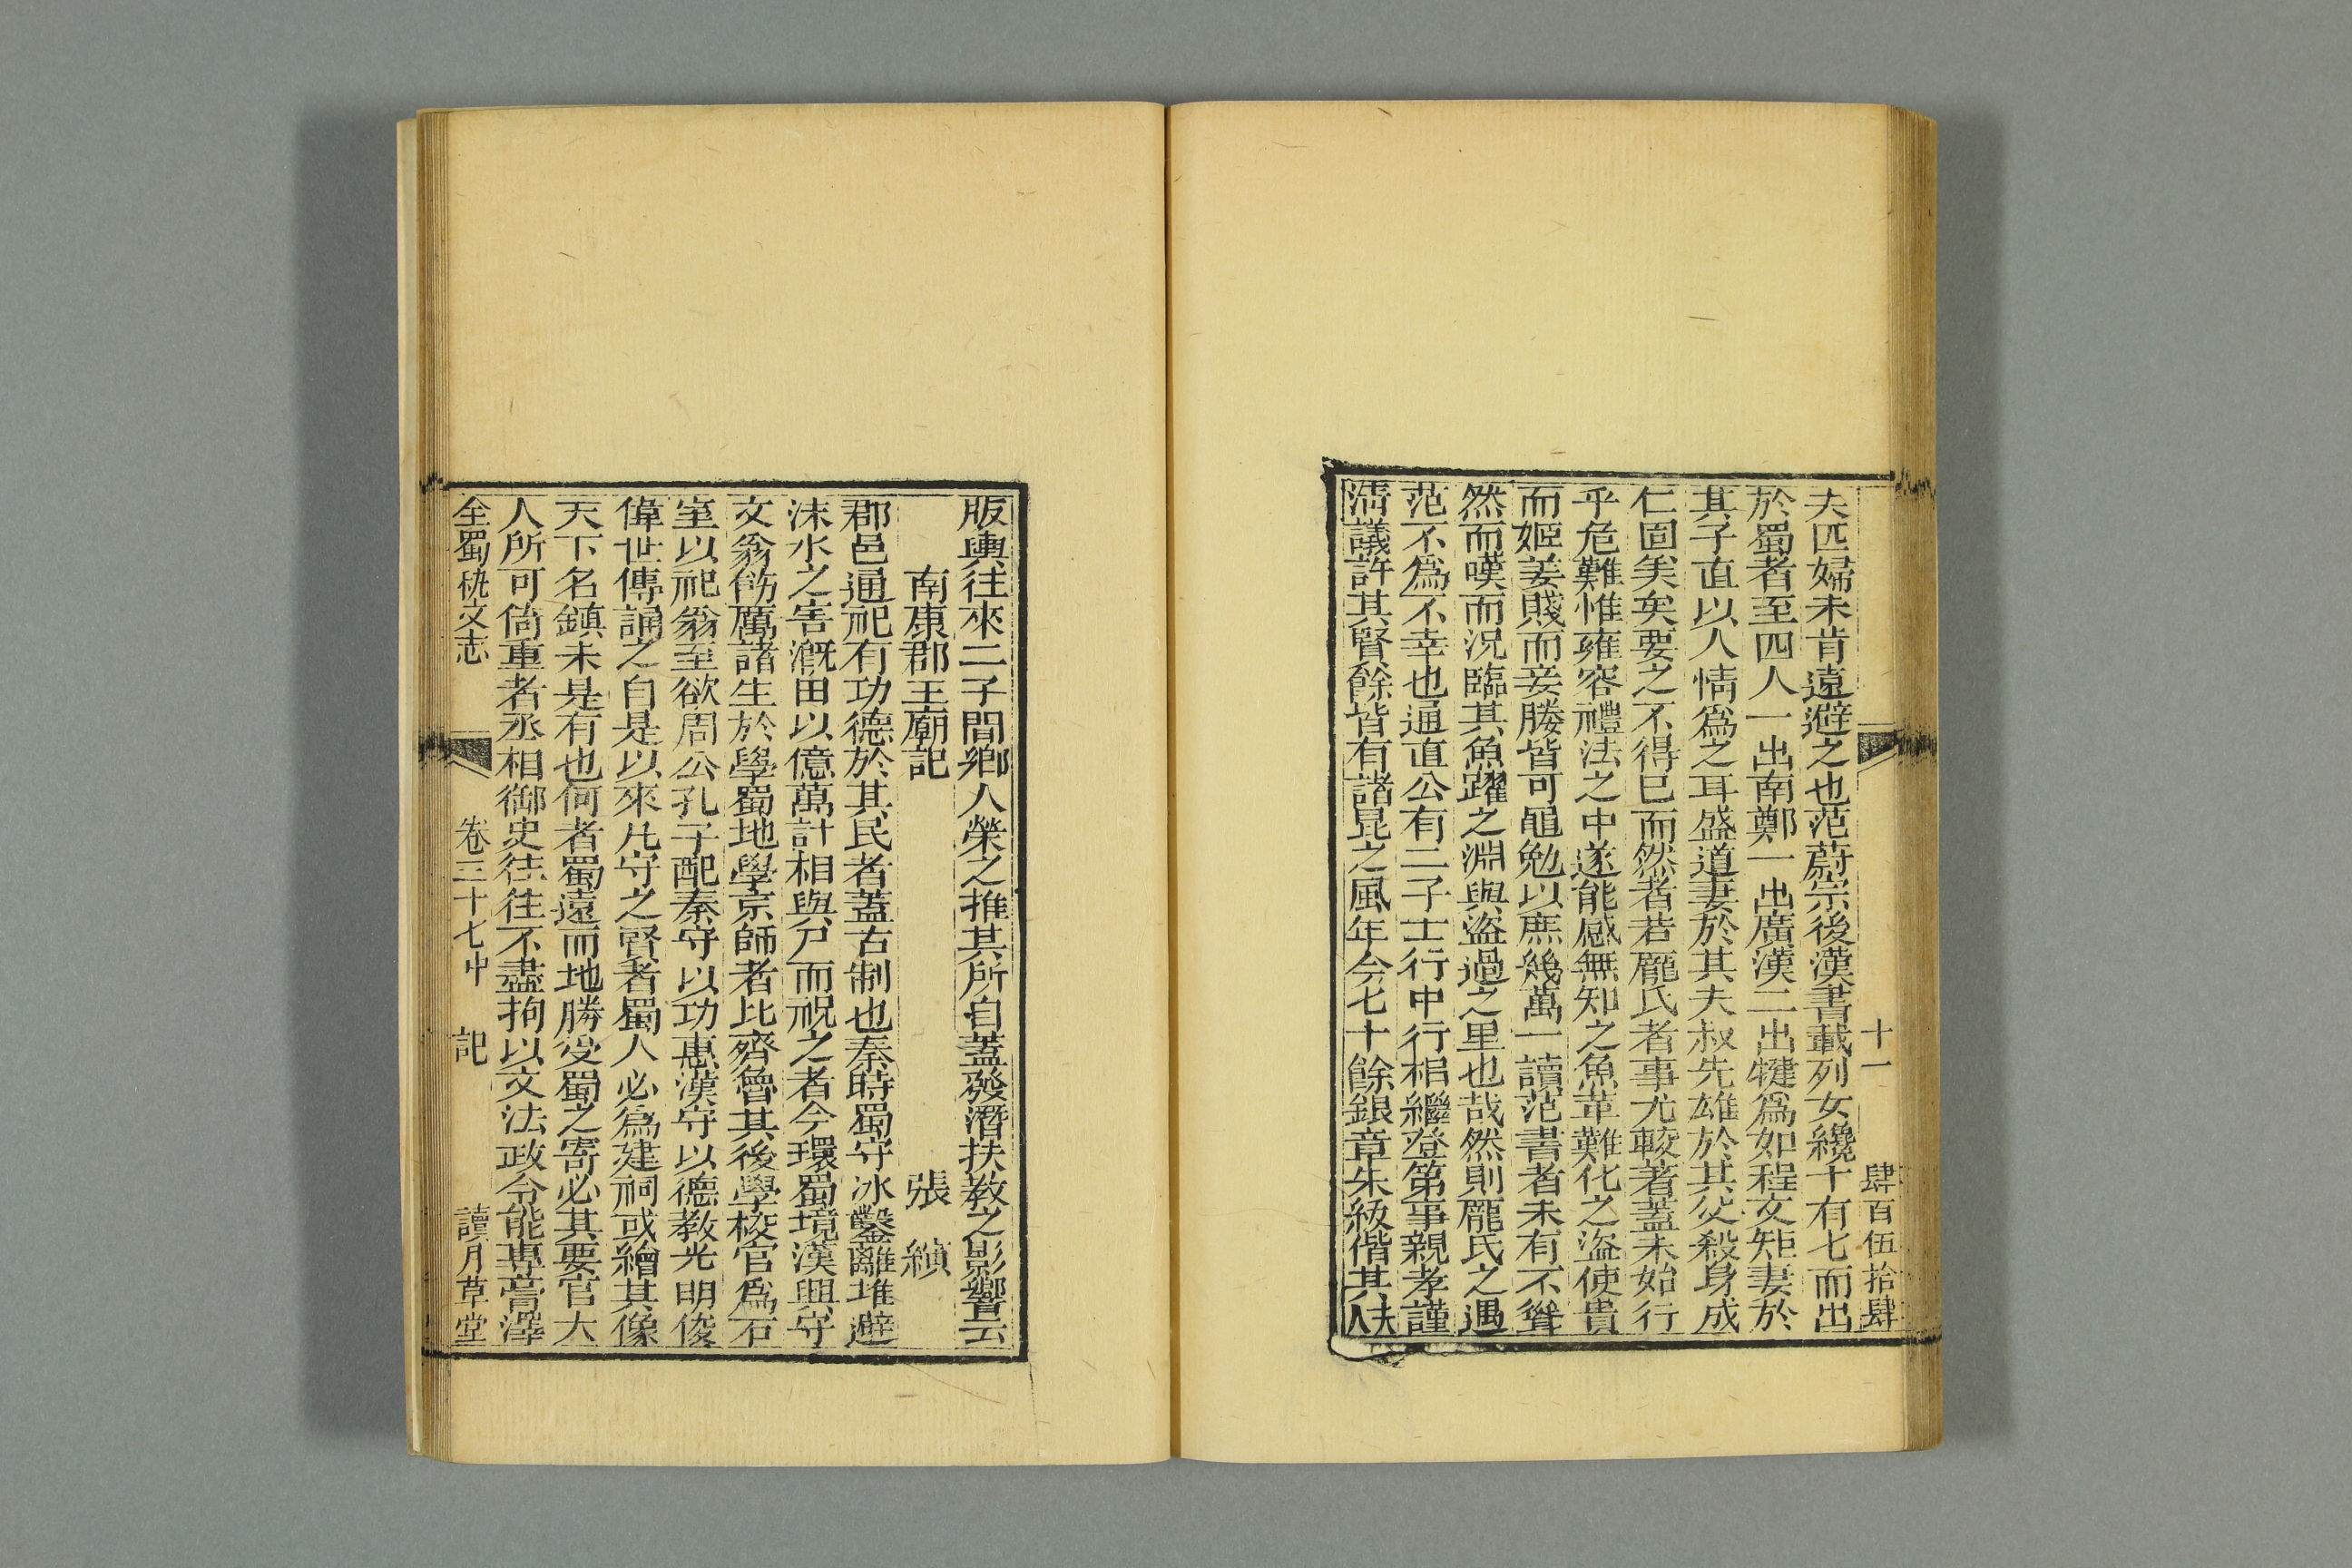 十一　肆百伍拾肆
夫匹婦未肯遠避之也范蔚宗後漢書載列女纔十有七而出
於蜀者至四人一出南鄭一出廣漢二出犍爲如程文矩妻於
其子直以人情爲之耳盛道妻於其夫叔先雄於其父殺身成
仁固矣矣要之不得已而然者若龐氏者事尤較著蓋未始行
乎危難惟雍容禮法之中遂能感無知之魚革難化之盜使貴
而姬姜賤而妾媵皆可黽勉以庶幾萬一讀范書者未有不聳
然而嘆而況臨其魚躍之淵與盜過之里也哉然則龐氏之遇
范不爲不幸也通直公有二子士行中行相繼登第事親孝謹
淸議許其賢餘皆有諸昆之風年今七十餘銀章朱紱偕其夫人
版輿往來二子間鄉人榮之推其所自蓋發潛扶敎之影響云
南康郡王廟記　張　縯
郡邑通祀有功德於其民者蓋古制也秦時蜀守冰鑿離堆避
沫水之害漑田以億萬計相與尸而祝之者今環蜀境漢興守
文翁飭厲諸生於學蜀地學京師者比齊魯其後學校官爲石
室以祀翁至欲周公孔子配秦守以功惠漢守以德敎光明俊
偉世傳誦之自是以來凡守之賢者蜀人必爲建祠或繪其像
天下名鎮未是有也何者蜀遠而地勝受蜀之寄必其要官大
人所可倚重者丞相御史往往不盡拘以文法政令能專膏澤
全蜀秇文志　卷三十七中　記　讀月草堂